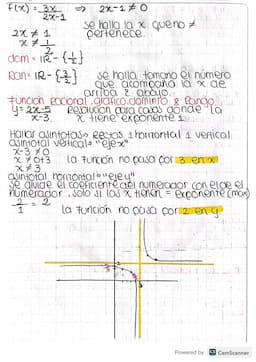 f(x) = 3x / 2x-1 ⇒ 2x-1 ≠ 0
se halla la x que no ≠ pertenece.
2x ≠ 1
x ≠ 1/2
dom = IR - {1/2}
Ran = IR - {3/2} se halla tomano el número que acompaña la x de arriba y abajo.
Función racional, gráfico, dominio & Rango
y = 2x-5 / x-3 Resolución para casos donde la x tiene exponente 1
Hallar asíntotas → Rectas 1 horizontal 1 vertical
asíntota vertical = "eje x"
x-3 ≠ 0
x ≠ 0+3 la función no pasa por 3 en x
x ≠ 3
asíntota horizontal = "eje y"
se divide el coeficiente del numerador con el del numerador. solo si las x tienen = exponente (max)
2/1 = 2 la función no pasa por 2 en y
Powered by CamScanner